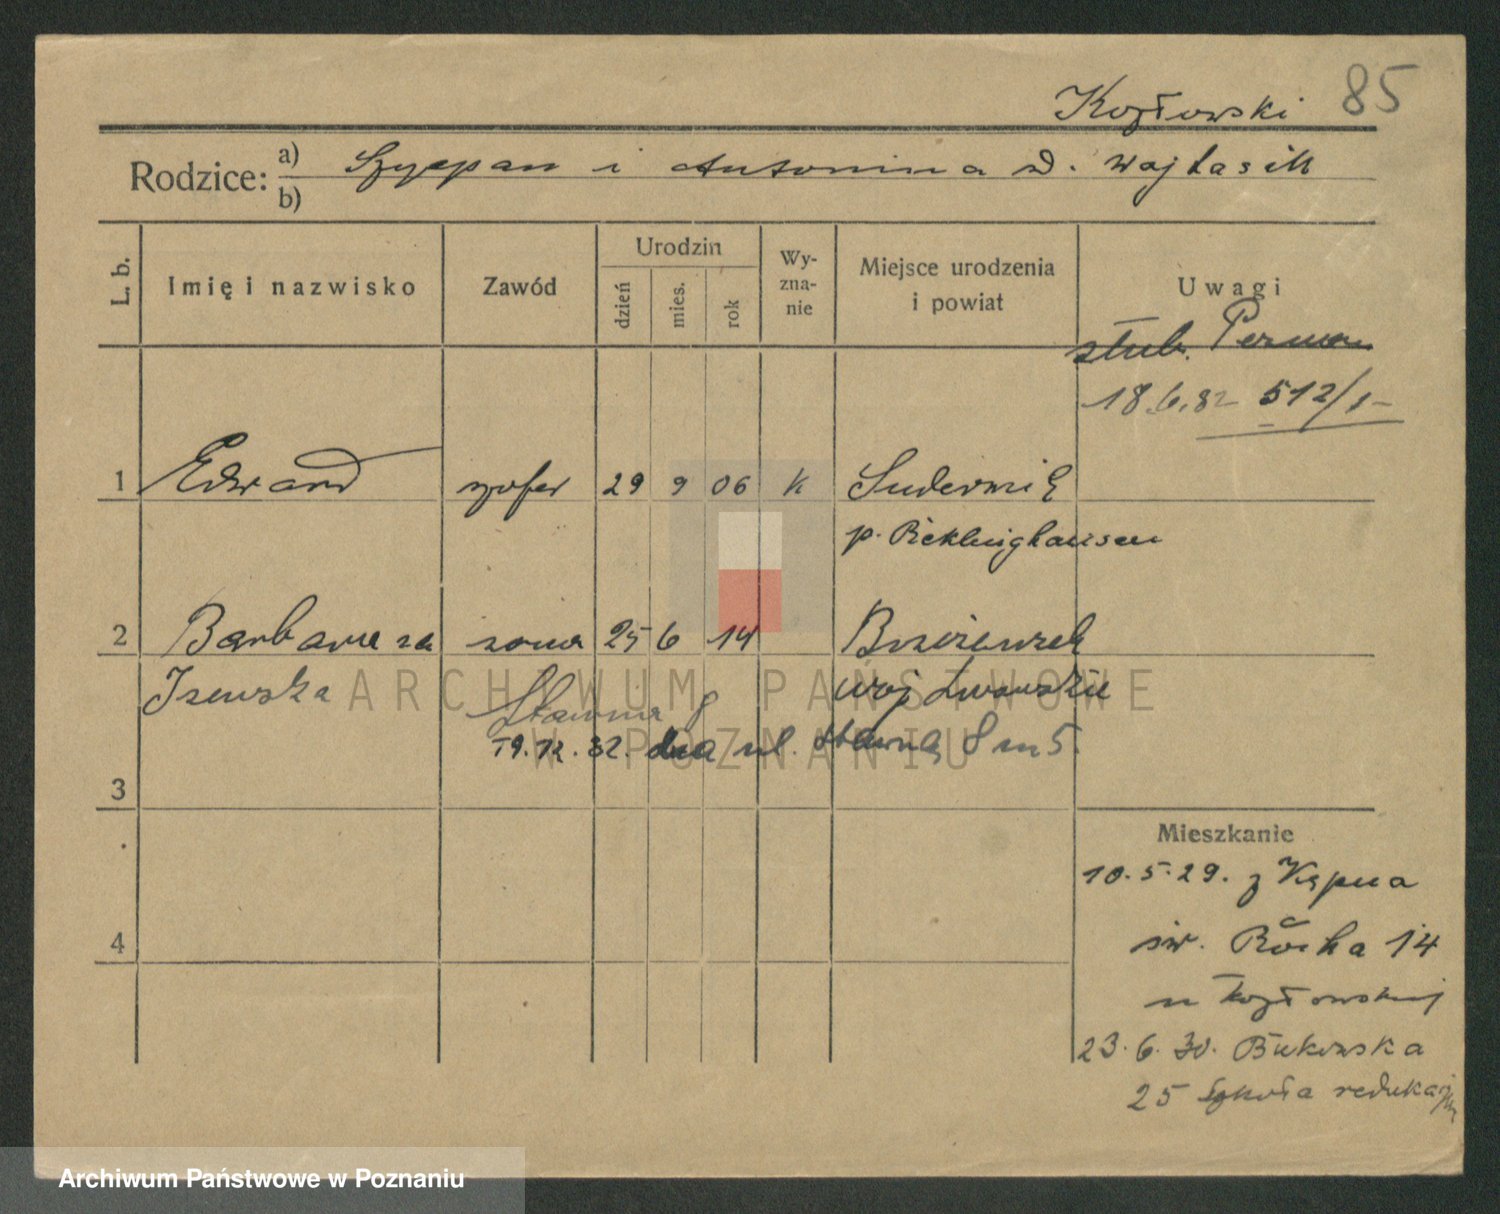 Kozłowski 85
Rodzice: a) Szczepan i Antonina d. Wojtasik
b)
L. b. Imię i nazwisko Zawód Urodzin dzień mies. rok Wy-zna-nie Miejsce urodzenia i powiat Uwagi
ślub. Poznań
18.6.32 512/I
1 Edward szofer 29 9 06 k Suderwich
p. Recklinghausen
2 Barbara za żona 25 6 14
woj Lwowskie
Sławna 8
19.12.32. ul. Sławna 8 m 5.
3
Mieszkanie
10.5.29. z Kępna
św. Rocha 14
4
u Kozłowskiej
23.6.30. Bukowska
25 Szkoła
ARCHIWUM PAŃSTWOWE
W POZNANIU
Archiwum Państwowe w Poznaniu